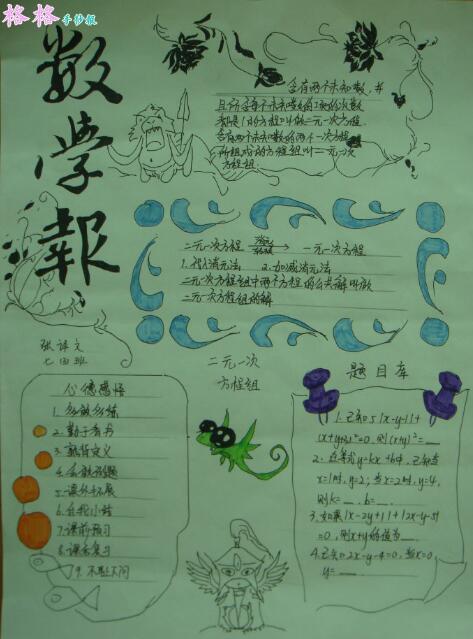 格格手抄报
数学報
含有两个未知数,并
且所含有个未知数的项的次数
都是1的方程叫做二元一次方程
含有两个未知数的两个一次方程
所组成的方程组叫二元一次
方程组
二元一次方程 一元一次方程
1.代入消元法 2.加减消元法
二元一次方程组中两个方程的公共解叫做
二元一次方程组的解
张译文
七四班
二元一次
方程组
心德感悟
1.多做多练
2.勤于看书
3.熟背定义
4.会做例题
5.课外拓展
6.自我小结
7.课前预习
8.课后复习
9.不耻下问
题目库
1.已知5|x-y-1|+
(x+y+2)²=0,则(x+y)²=__
2.在等式y=kx+b中,已知当
x=1时,y=2;当x=2时,y=4,
则k=__,b=__.
3.如果|x-2y+1|+|2x-y-5|
=0,则x+y的值为__.
4.已知2x-y-4=0,当x=0,
y=__.